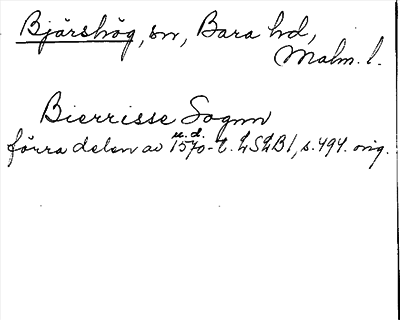 Bjärshög, sn, Bara hd,
Malm. l.
Bierrisse Sognn
u. d.
förra delen av 1570-t. LSLB1, s. 494. orig.